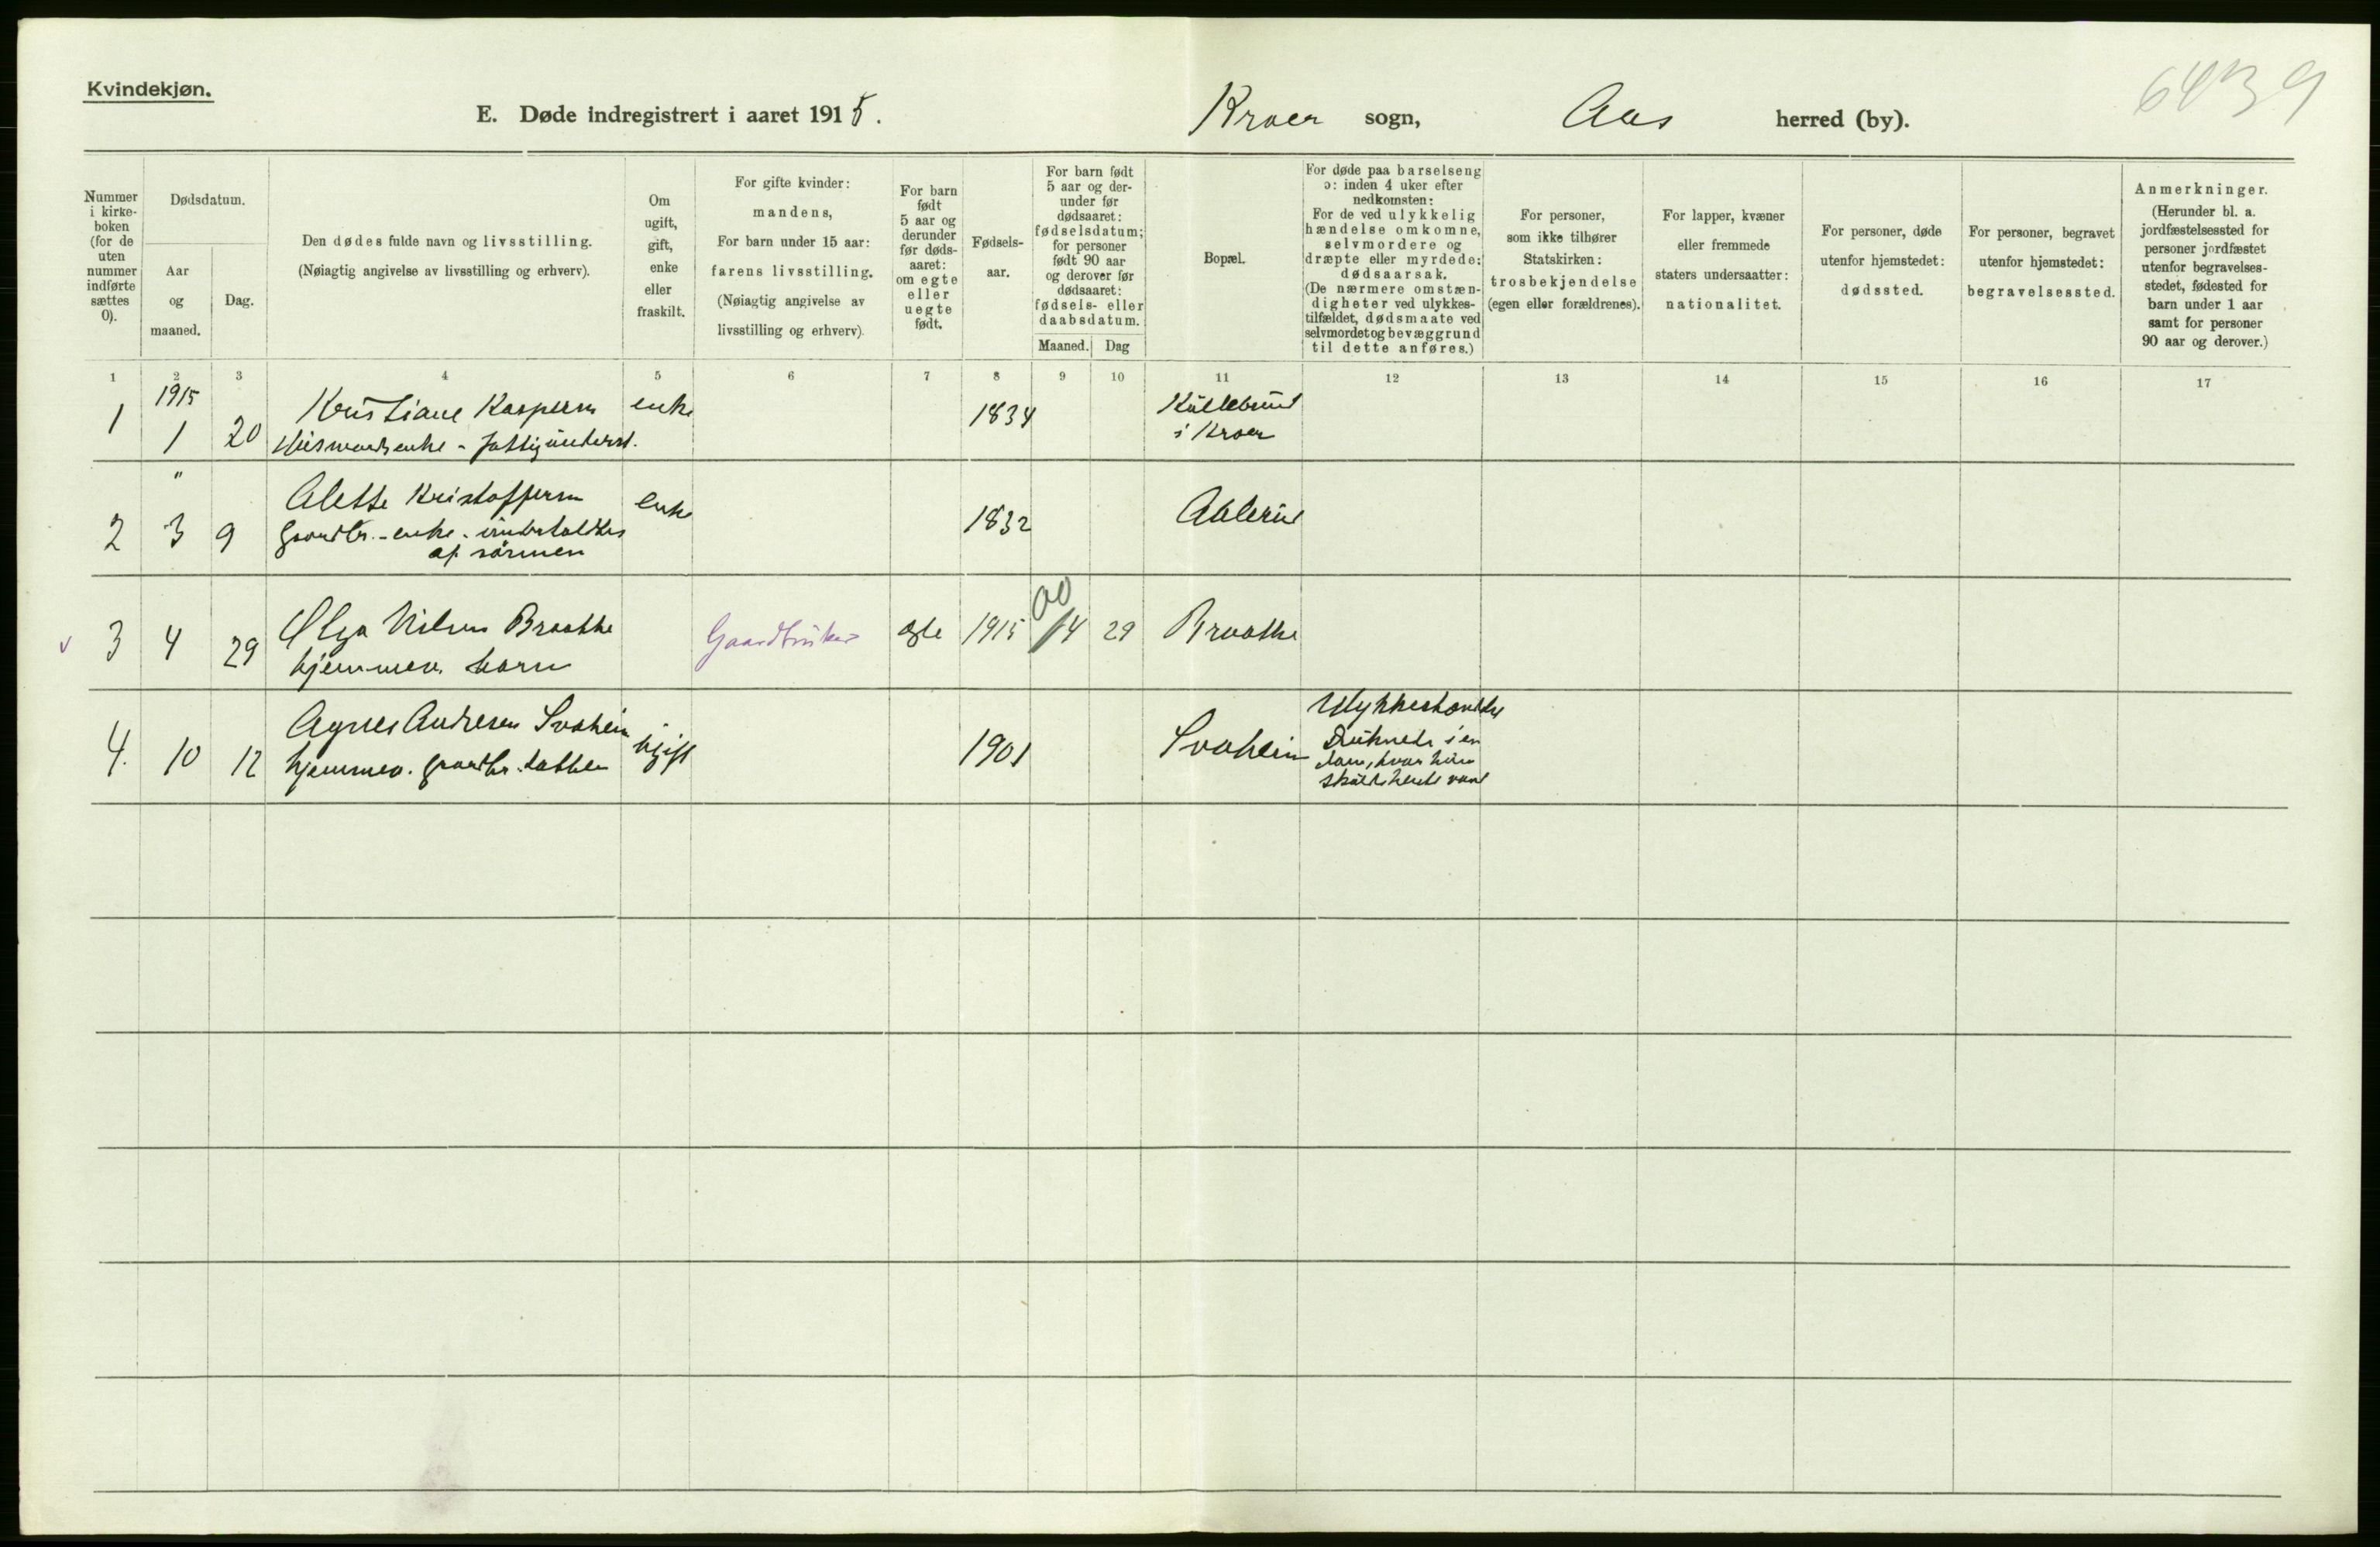 Kvindekjøn.
6439
E. Døde indregistrert i aaret 1915.
Kroer sogn, Aas herred (by).
Nummer
i kirke-
boken
(for de
uten
nummer
indførte
sættes
0).
Dødsdatum.
Aar
og
maaned.
Dag.
Den dødes fulde navn og livsstilling.
(Nøiagtig angivelse av livsstilling og erhverv).
Om
ugift,
gift,
enke
eller
fraskilt.
For gifte kvinder:
mandens,
For barn under 15 aar:
farens livsstilling.
(Nøiagtig angivelse av
livsstilling og erhverv).
For barn
født
5 aar og
derunder
før døds-
aaret:
om egte
eller
uegte
født.
Fødsels-
aar.
For barn født
5 aar og der-
under før
dødsaaret:
fødselsdatum;
for personer
født 90 aar
og derover før
dødsaaret:
fødsels- eller
daabsdatum.
Maaned. Dag
Bopæl.
For døde paa barselseng
ɔ: inden 4 uker efter
nedkomsten:
For de ved ulykkelig
hændelse omkomne,
selvmordere og
dræpte eller myrdede:
dødsaarsak.
(De nærmere omstæn-
digheter ved ulykkes-
tilfældet, dødsmaate ved
selvmordet og bevæggrund
til dette anføres.)
For personer,
som ikke tilhører
Statskirken:
trosbekjendelse
(egen eller forældrenes).
For lapper, kvæner
eller fremmede
staters undersaatter:
nationalitet.
For personer, døde
utenfor hjemstedet:
dødssted.
For personer, begravet
utenfor hjemstedet:
begravelsessted.
Anmerkninger.
(Herunder bl. a.
jordfæstelsessted for
personer jordfæstet
utenfor begravelses-
stedet, fødested for
barn under 1 aar
samt for personer
90 aar og derover.)
1 2 3 4 5 6 7 8 9 10 11 12 13 14 15 16 17
1915
1 1 20 Kristiane Kaspersen enke 1834
Husmandsenke - fattigunderst.
i Kroer
"
2 3 9 Alette Kristoffersen enke 1832
gaardbr.-enke - underholdtes
af sønnen
v 3 4 29 Olga Nilsen Braathe Gaardbruker egte 1915 00/4 29 Braathe
hjemmev. barn
4. 10 12 Agnes Andresen Svaheim ugift 1901 Svaheim
hjemmev. gaardbr. datter
Ulykkeshændelse
Druknede i en
dam, hvor hun
skulde hente vand